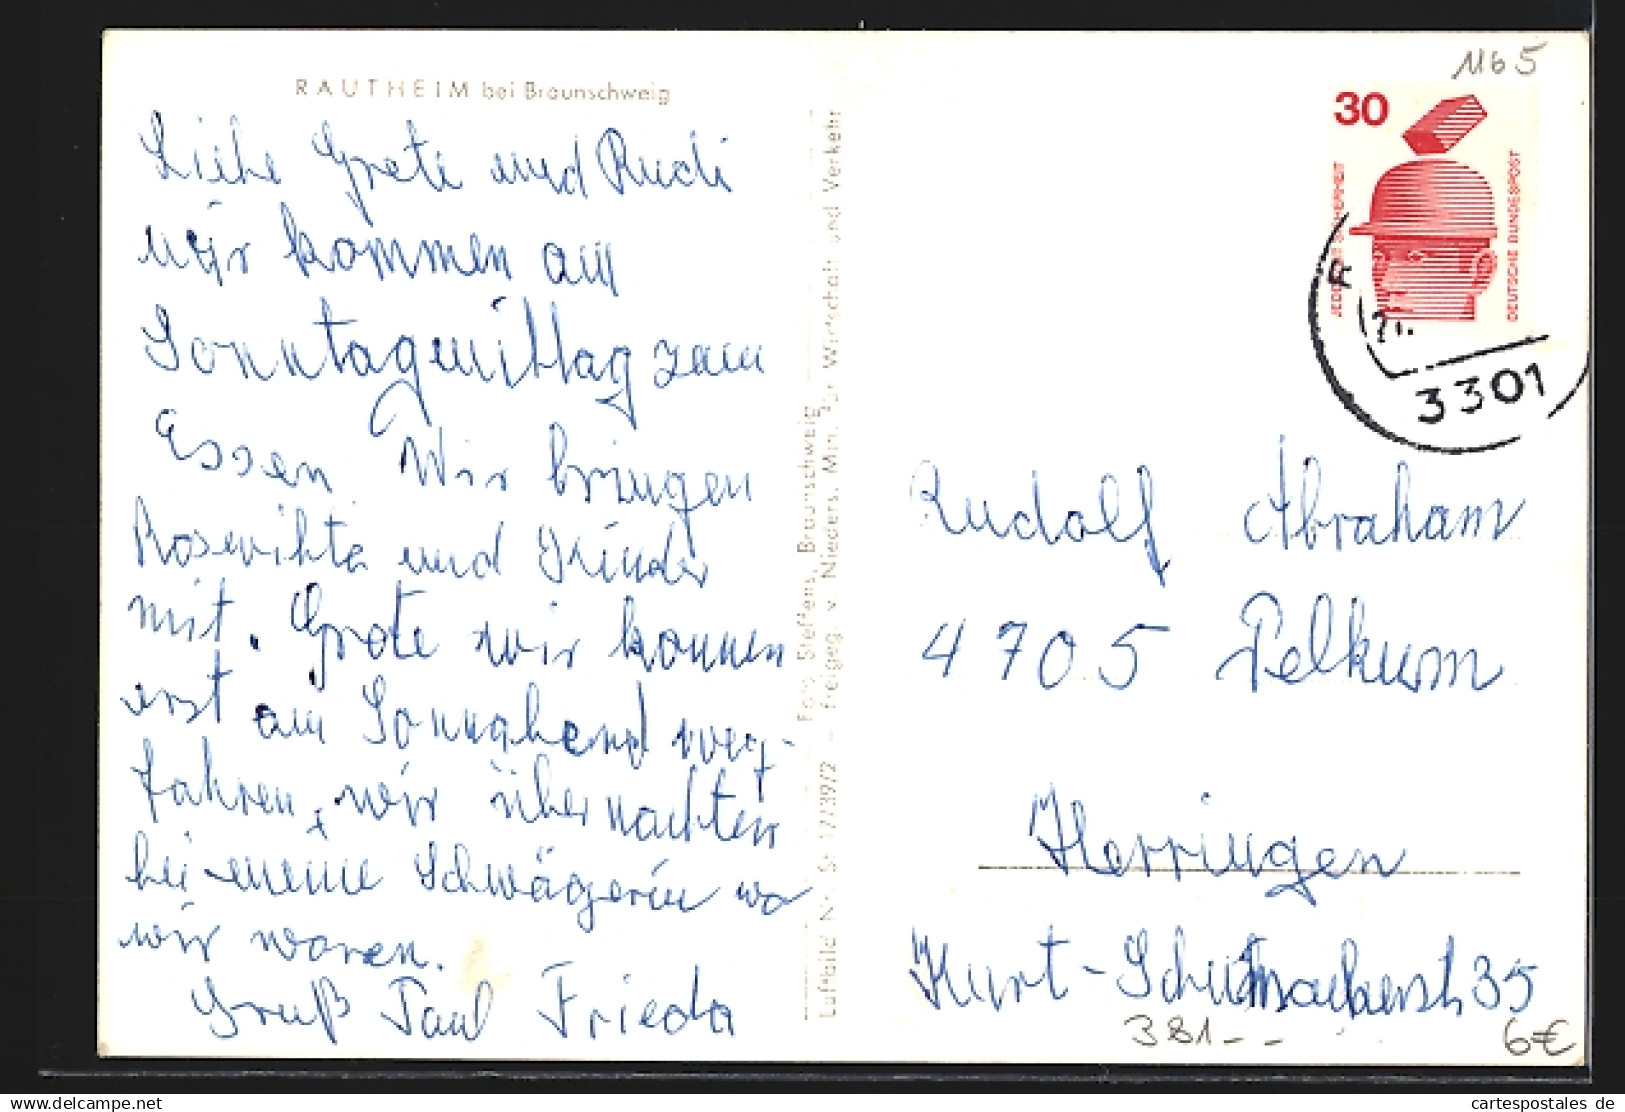 RAUTHEIM bei Braunschweig
Liebe Grete und Rudi
wir kommen am
Sonntagmittag zum
Essen Wir bringen
Roswihta und Kinder
mit. Grete wir konnen
erst am Sonnabend weg-
fahren, wir übernachten
bei meine Schwägerin wo
wir waren.
Gruß Paul Frieda
Foto Steffens, Braunschweig
Freigeg. v. Nieders. Min. für Wirtschaft und Verkehr
Luftbild Nr. St
1165
30
JEDER
SICHERHEIT
DEUTSCHE BUNDESPOST
R
21.
3301
Rudolf Abraham
4705 Pelkum
Herringen
Kurt-Schumacherstr 35
381--
6€
cartespostales de